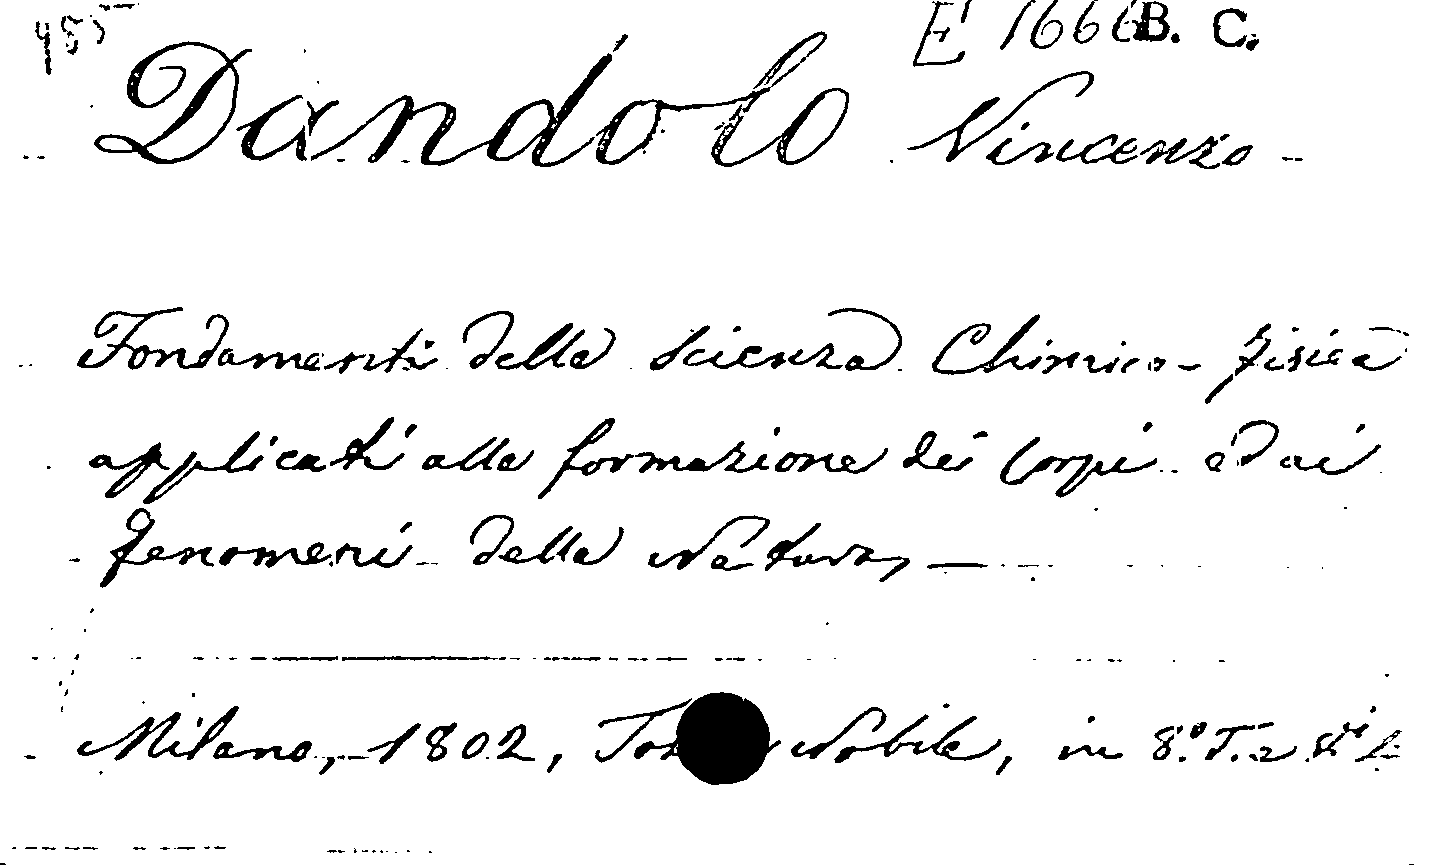 955 E 1666 B. C.
Dandolo Vincenzo -
Fondamenti della Scienza Chimico-fisica
applicati alla formazione dei Corpi ed ai
fenomeni della Natura, —
Milano, 1802, Nobile, in 8.° T. 2